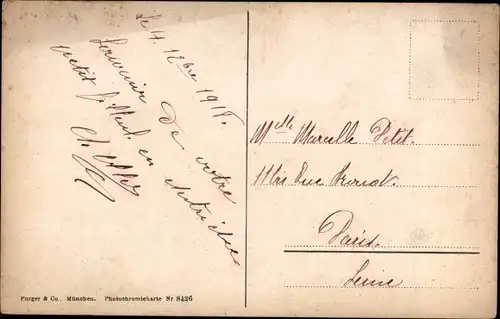 Le 4. 12bre 1918.
Souvenir de votre
petit filleul en Autriche
Ch.
Melle Marcelle Petit.
11bis Rue
Paris.
Seine
Purger & Co., München. Photochromiekarte Nr 8426